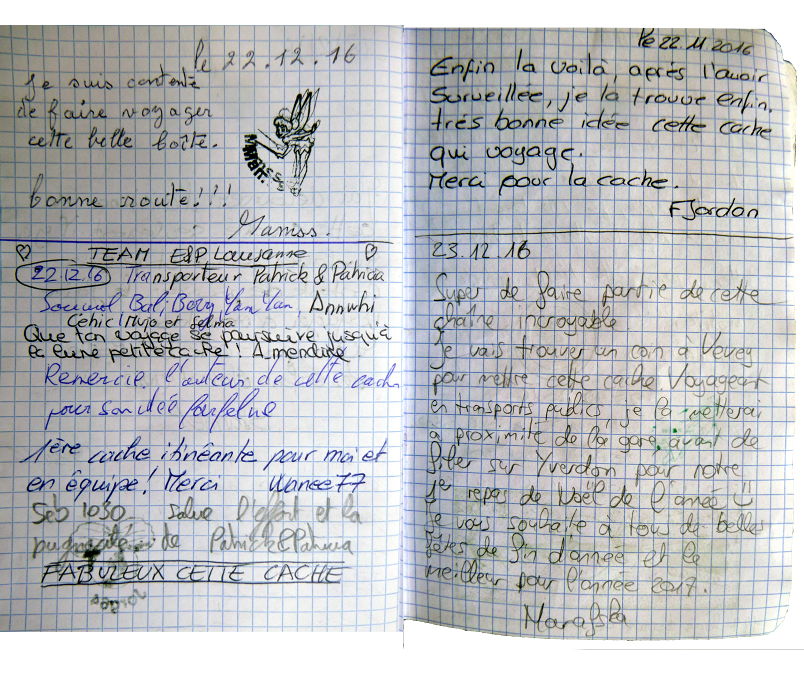 le 22.12.16
je suis contente
de faire voyager
cette belle boîte.
bonne route!!!
Maniss.
TEAM ESP Lausanne
22.12.16 Transporteur Patrick & Patricia
Bal, Bory, Yan Yan, Annuhi
Cehic, Mujo et Selma
Que ton voyage se poursuive jusqu'à
petite cache! Amendine
Remercie l'auteur de cette cache
pour son idée farfelue
1ère cache itinéante pour moi et
en équipe! Merci Wanee77
Seb 1030 salue l'effort et la
pugnacité de Patrick & Patricia
FABULEUX CETTE CACHE
le 22.11.2016
Enfin la voilà, après l'avoir
Surveillée, je la trouve enfin.
très bonne idée cette cache
qui voyage.
Merci pour la cache.
FJordan
23.12.16
Super de faire partie de cette
chaîne incroyable
Je vais trouver un coin à Vevey
pour mettre cette cache. Voyageant
en transports publics, je la metterai
à proximité de la gare, avant de
filer sur Yverdon pour notre
1er repas de Noël de l'année
Je vous souhaite à tous de belles
fêtes de fin d'année et le
meilleur pour l'année 2017.
Marafka